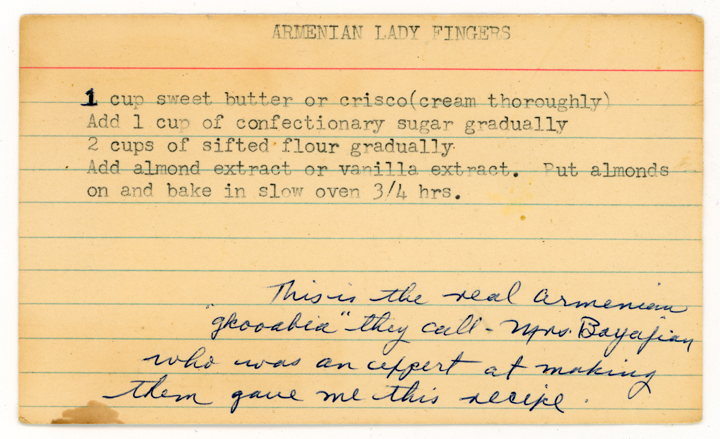 ARMENIAN LADY FINGERS
1 cup sweet butter or crisco(cream thoroughly)
Add 1 cup of confectionary sugar gradually
2 cups of sifted flour gradually
Add almond extract or vanilla extract. Put almonds
on and bake in slow oven 3/4 hrs.
This is the real Armenian
"gkooabia" they call - Mrs. Boyajian
who was an expert at making
them gave me this recipe.